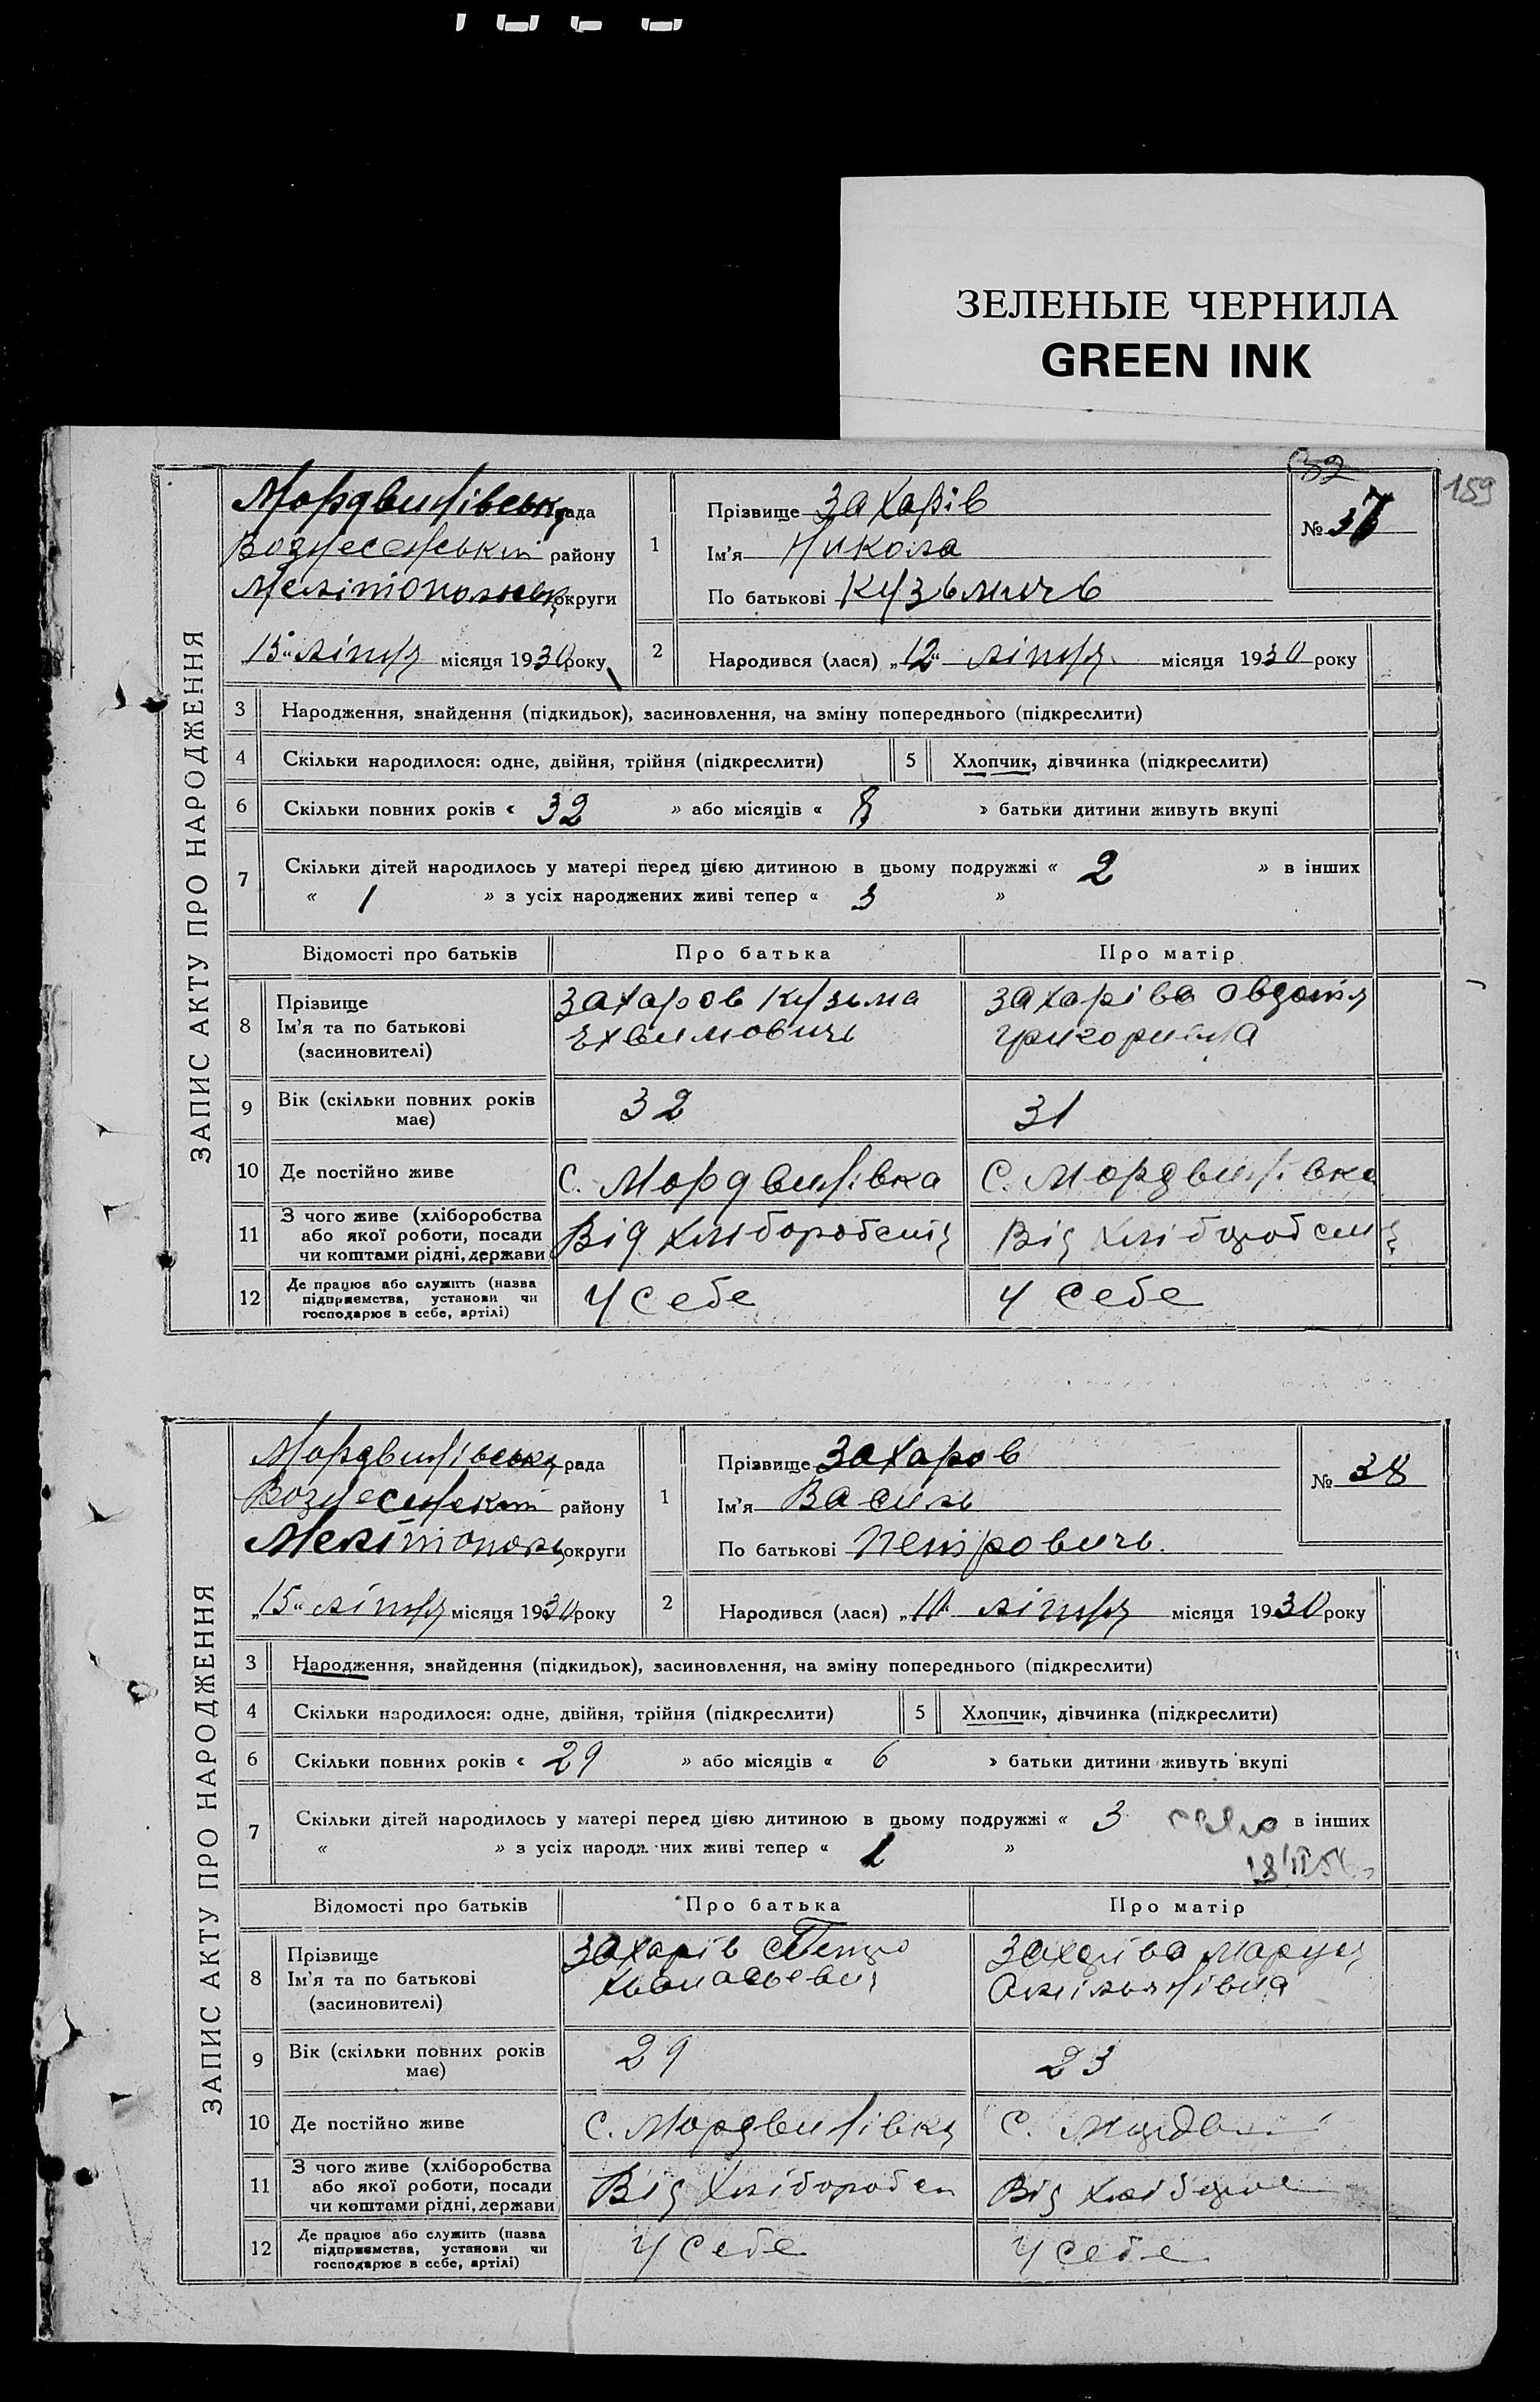 ЗЕЛЕНЫЕ ЧЕРНИЛА
GREEN INK
32
159
ЗАПИС АКТУ ПРО НАРОДЖЕННЯ
Мордвинівська рада
Вознесенський району
Мелітопольськ округи
„15“ лютня місяця 1930 року
1
Прізвище Захарів
Ім’я Никола
По батькові Кузьмичь
№ 37
2
Народився (лася) „12“ лютня місяця 1930 року
3 Народження, знайдення (підкидьок), засиновлення, на зміну попереднього (підкреслити)
4 Скільки народилося: одне, двійня, трійня (підкреслити) 5 Хлопчик, дівчинка (підкреслити)
6 Скільки повних років « 32 » або місяців « 8 » батьки дитини живуть вкупі
7 Скільки дітей народилось у матері перед цією дитиною в цьому подружжі « 2 » в інших
« 1 » з усіх народжених живі тепер « 3 »
Відомості про батьків Про батька Про матір
8 Прізвище Ім’я та по батькові (засиновителі)
Захаров Кузьма Захаріва Овдотя
Ехвимовичь Григоривна
9 Вік (скільки повних років має) 32 31
10 Де постійно живе С. Мордвинівка С. Мордвинівка
11 З чого живе (хліборобства або якої роботи, посади чи коштами рідні, держави Від хліборобств Від хліборобст
12 Де працює або служить (назва підприємства, установи чи господарює в себе, артілі) У себе У себе
ЗАПИС АКТУ ПРО НАРОДЖЕННЯ
Мордвинівська рада
Вознесенський району
Мелітополь округи
„15“ лютня місяця 1930 року
1
Прізвище Захаров
Ім’я Василь
По батькові Петровичь
№ 38
2
Народився (лася) „10“ лютня місяця 1930 року
3 Народження, знайдення (підкидьок), засиновлення, на зміну попереднього (підкреслити)
4 Скільки народилося: одне, двійня, трійня (підкреслити) 5 Хлопчик, дівчинка (підкреслити)
6 Скільки повних років « 29 » або місяців « 6 » батьки дитини живуть вкупі
7 Скільки дітей народилось у матері перед цією дитиною в цьому подружжі « 3 в інших
« » з усіх народжених живі тепер « 1 »
Відомості про батьків Про батька Про матір
8 Прізвище Ім’я та по батькові (засиновителі)
Захарів Петро Захаріва
9 Вік (скільки повних років має) 29 23
10 Де постійно живе С. Мордвинівка С. Мордвин
11 З чого живе (хліборобства або якої роботи, посади чи коштами рідні, держави Від хліборобст Від хліборо
12 Де працює або служить (назва підприємства, установи чи господарює в себе, артілі) У себе У себе